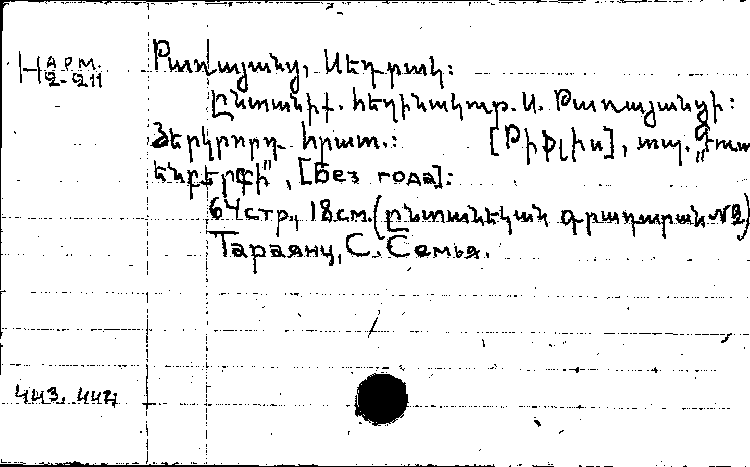 Н АРМ.
2-211
Թառայանց, Սեդրակ:
Ընտանիք. հեղինակութ. Ս. Թառայանցի:
Յերկրորդ հրատ.: [Թիֆլիս], տպ. „Գուտ
ենբերգի", [Без года]:
64 стр., 18 см. (Ընտանեկան գրադարան №2)
Тараянц, С. Семья.
443. 442;